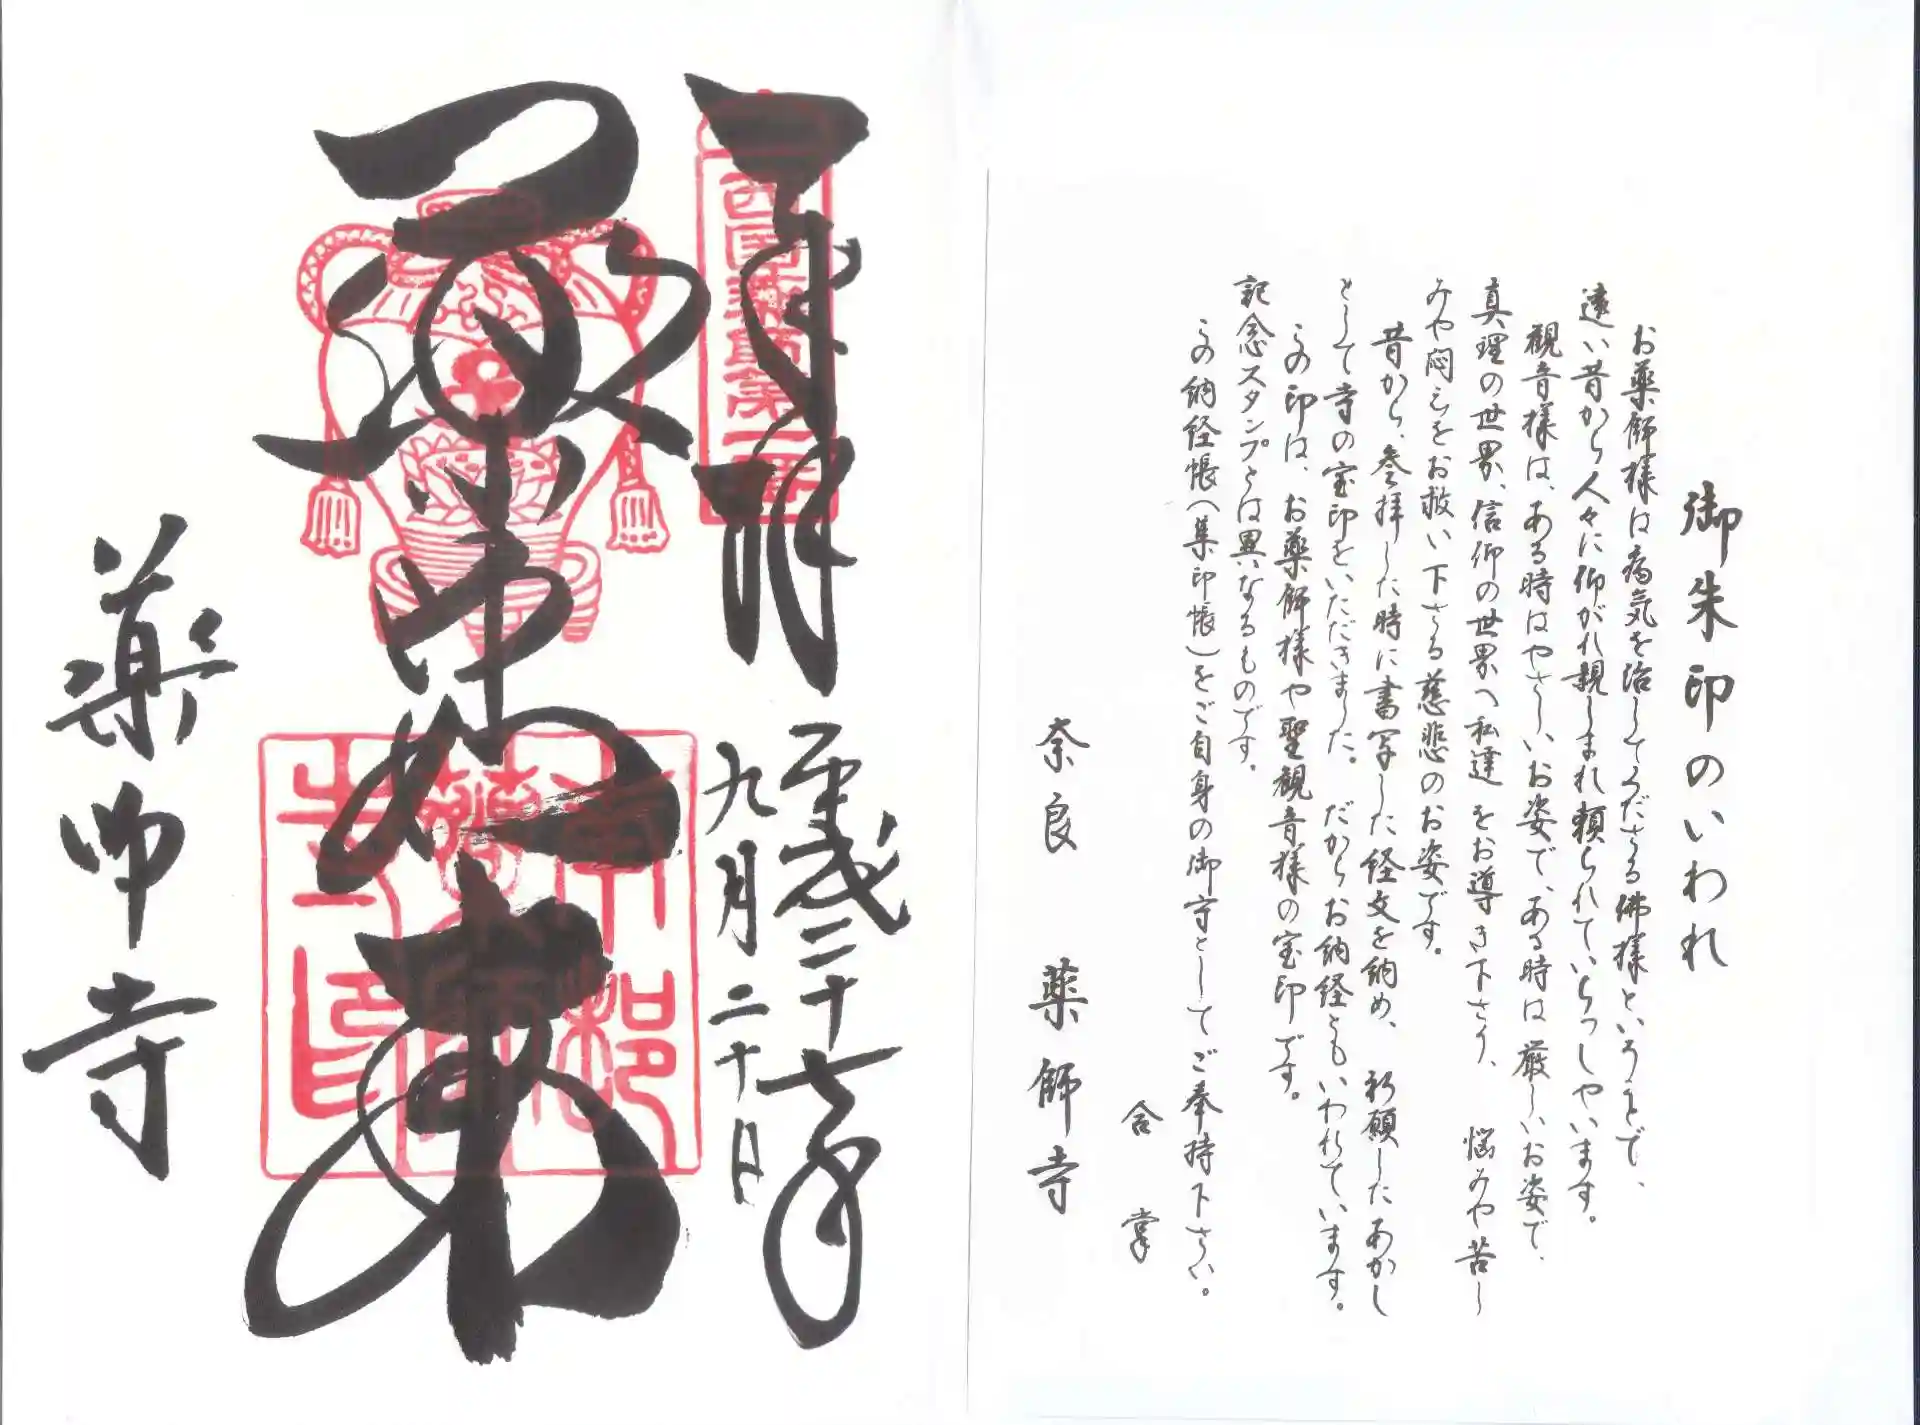 御朱印のいわれ
お薬師様は病気を治してくださる佛様ということで、
遠い昔から人々に仰がれ親しまれ頼られていらっしゃいます。
観音様は、ある時はやさしいお姿で、ある時は厳しいお姿で、
真理の世界、信仰の世界へ私達をお導き下さり、悩みや苦し
みや悶えをお救い下さる慈悲のお姿です。
昔から、参拝した時に書写した経文を納め、祈願したあかし
として寺の宝印をいただきました。だからお納経ともいわれています。
この印は、お薬師様や聖観音様の宝印です。
記念スタンプとは異いなるものです。
この納経帳(集印帳)をご自身の御守としてご奉持下さい。
合掌
奈良 薬師寺
奉拝
平成二十七年
九月二十日
西国薬師第一番
薬師如来
薬師寺